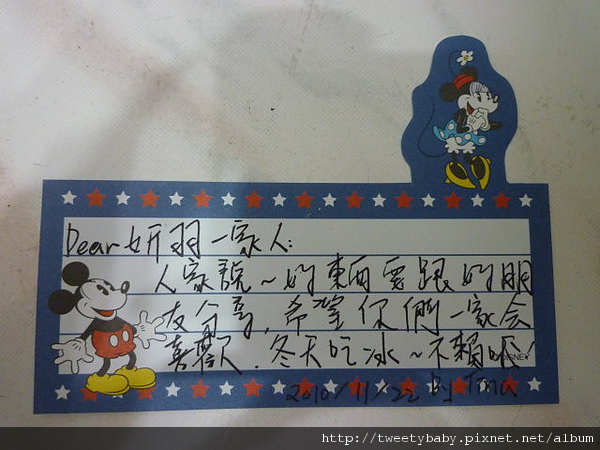 Dear 妍羽一家人:
人家說~好東西要跟好朋
友分享,希望你們一家会
喜歡.冬天吃冰~不賴呢!
DISNEY
2010/11/22 By Tina
http://tweetybaby.pixnet.net/album